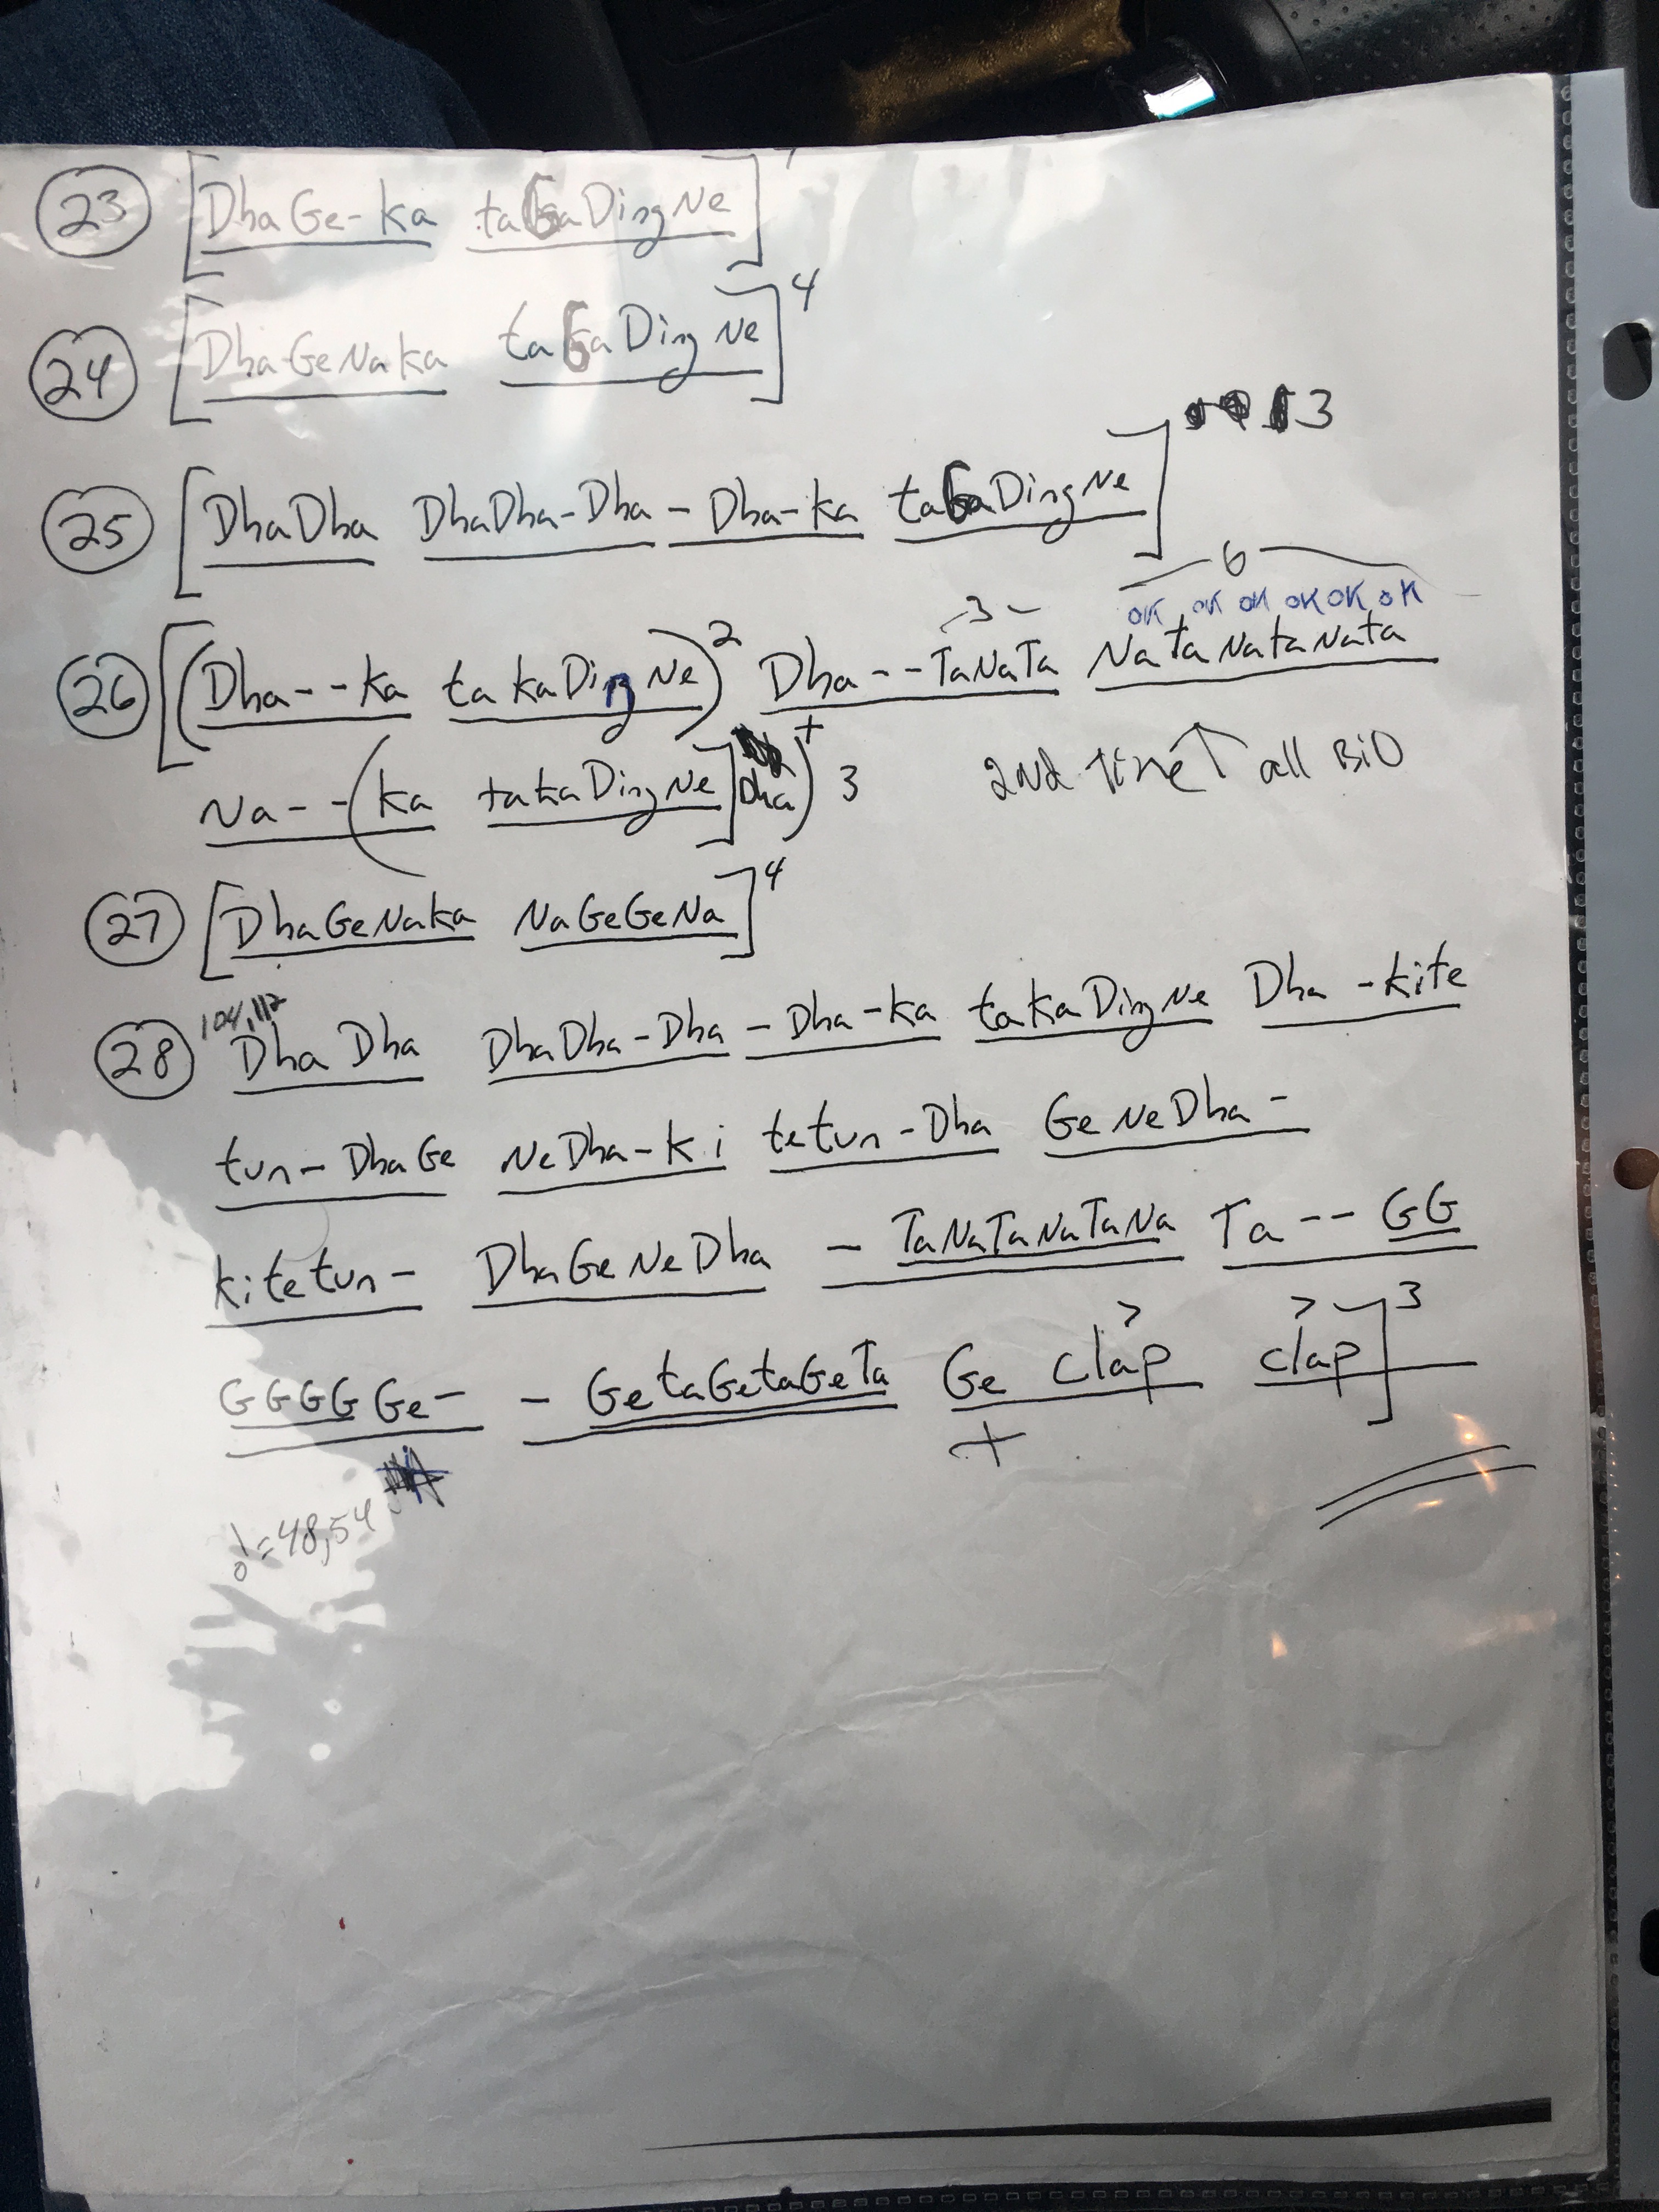 23 [DhaGe-ka taGaDingNe]
24 [DhaGeNaka taGaDingNe]4
25 [DhaDha DhaDha-Dha - Dha-ka taGaDingNe] 3
6
3 OK OK OK OK OK OK
26 [(Dha--ka takaDingNe)2 Dha--TaNaTa NaTaNataNata
Na--(ka takaDingNe] Dha)+ 3 2nd time ↑ all
27 [DhaGeNaka NaGeGeNa]4
104,112
28 DhaDha DhaDha-Dha - Dha-ka takaDingNe Dha-kite
tun-DhaGe NeDha-ki tetun-Dha GeNeDha-
kitetun- DhaGeNeDha - TaNaTaNaTaNa Ta--GG
GGGGGe- - GetaGetaGeTa Ge clap clap]3
> >
+
=48,54